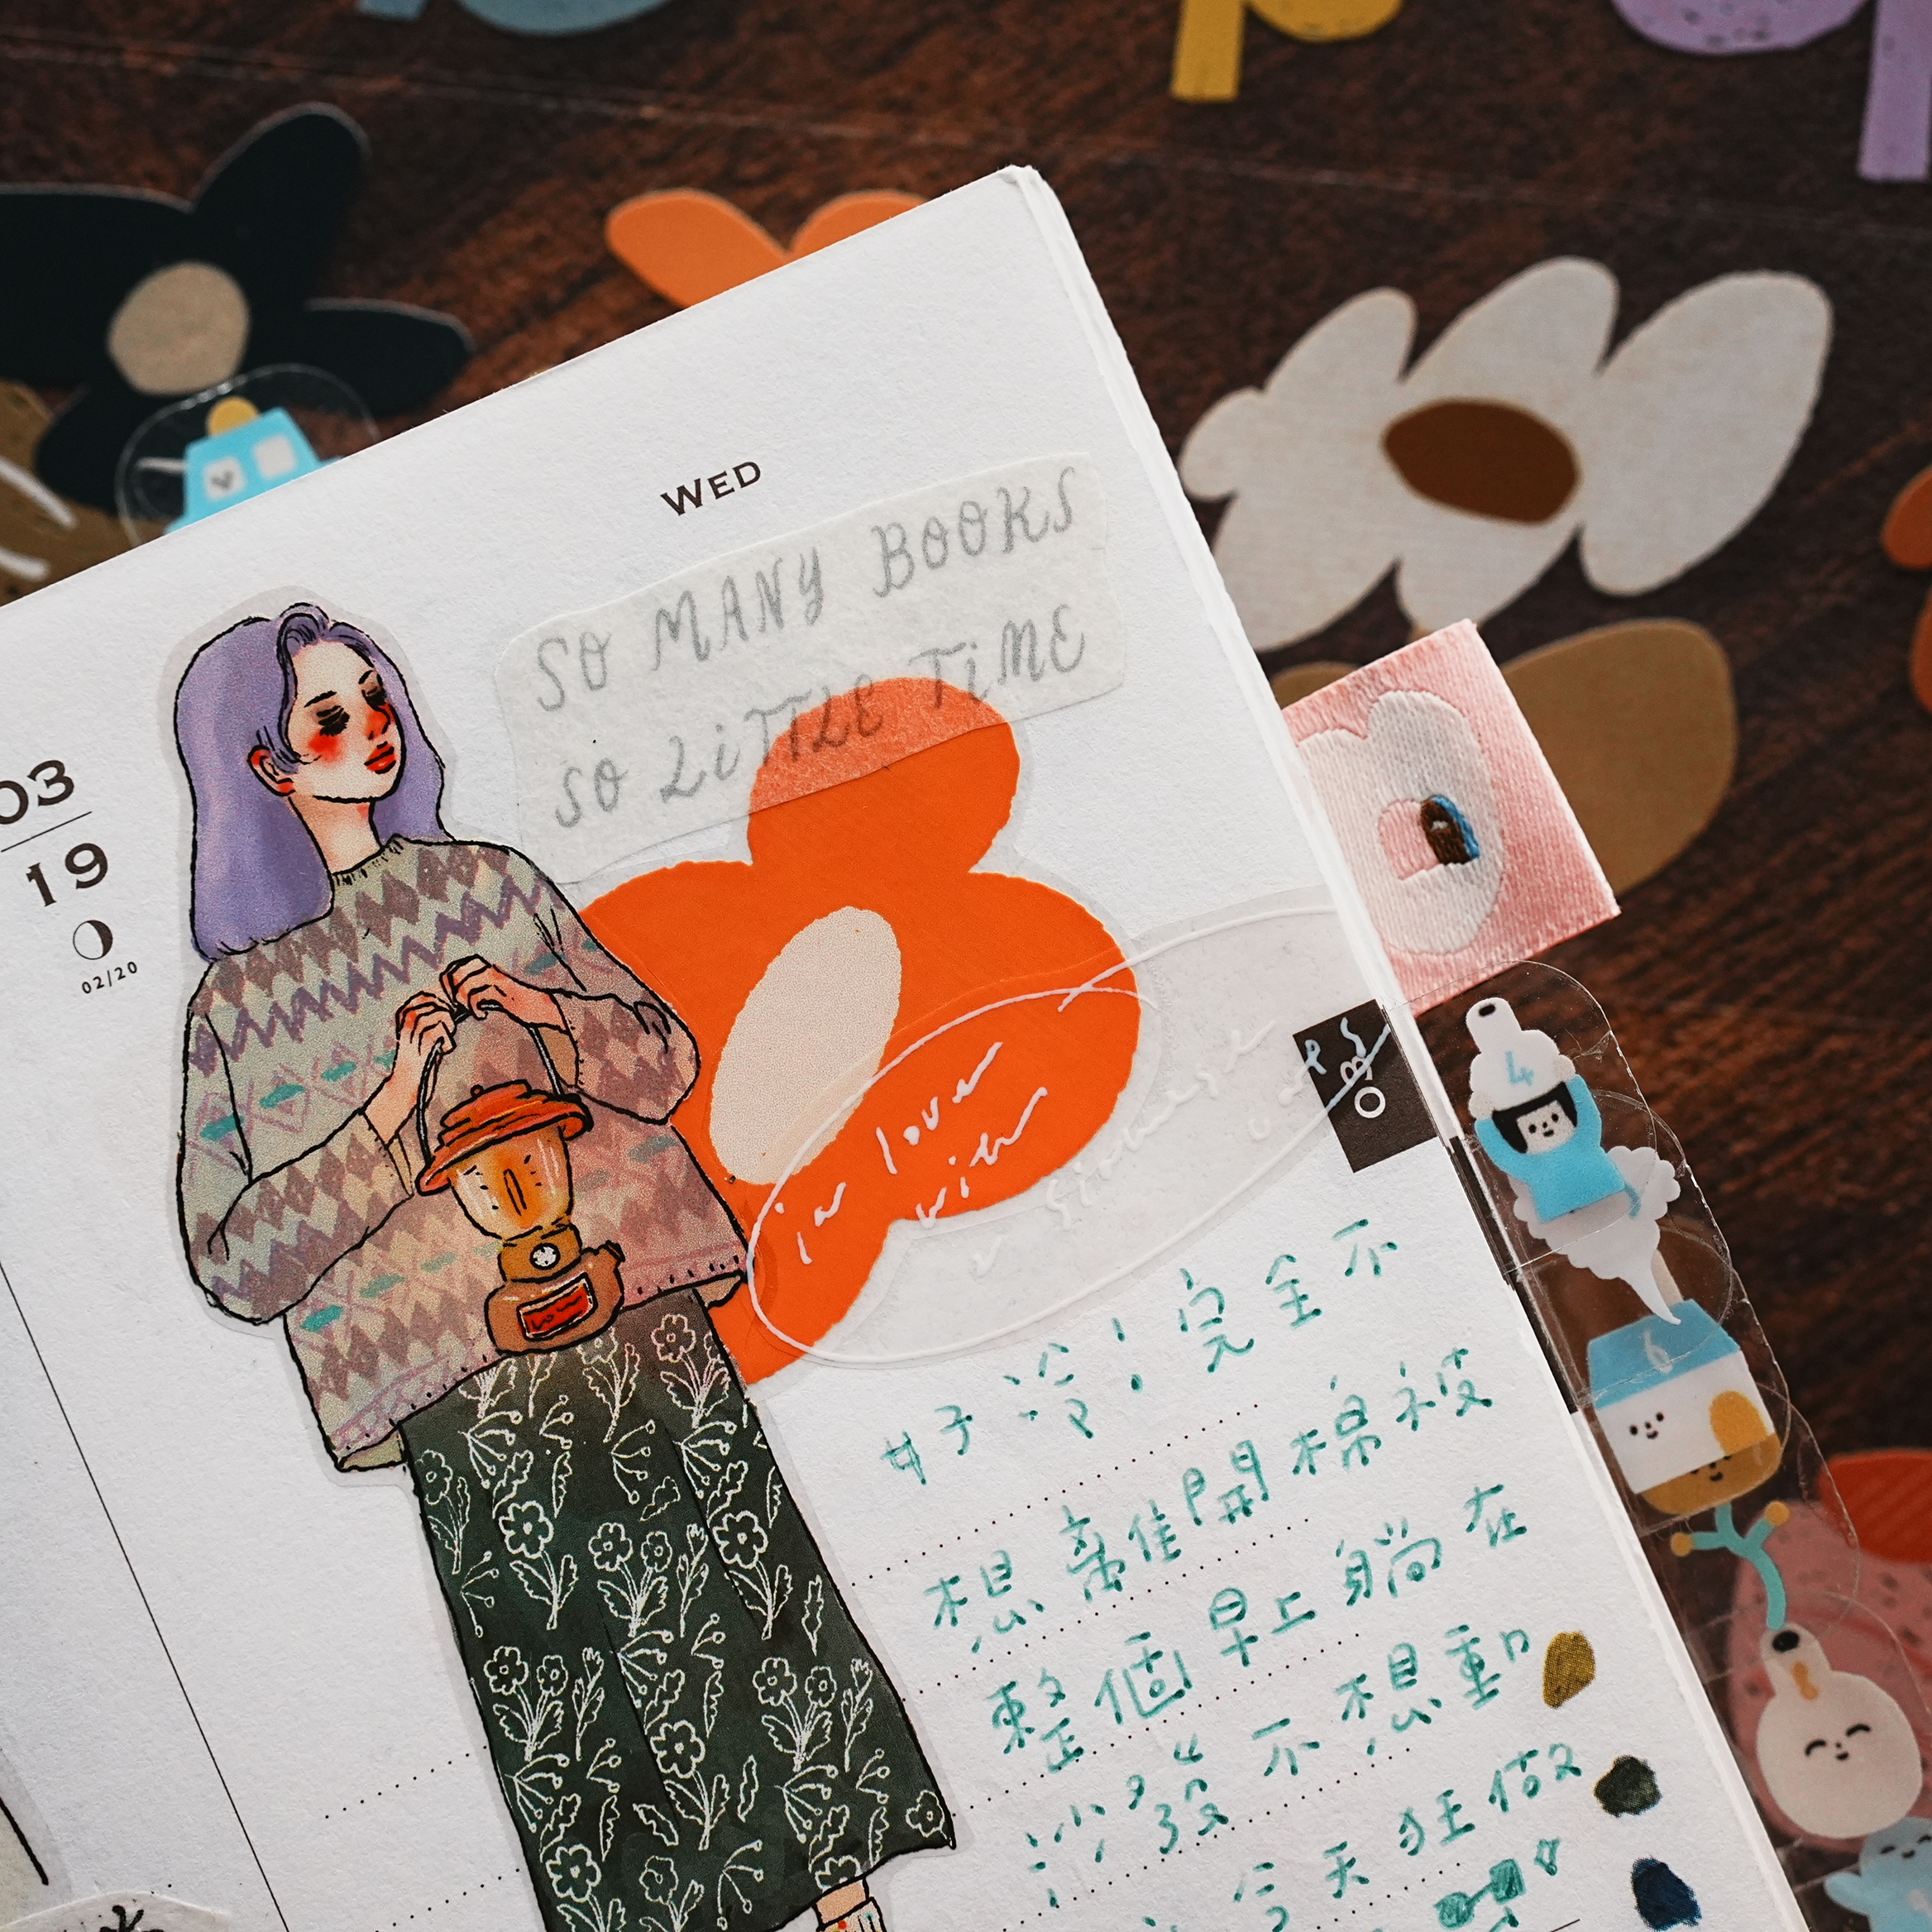 WED
SO MANY BOOKS
SO LiTTLE TiME
03
19
02/20
in love
with
a siamese
cat
好冷!完全不
想離開棉被
整個早上躺在
沙發不想動
今天狂做
4
6